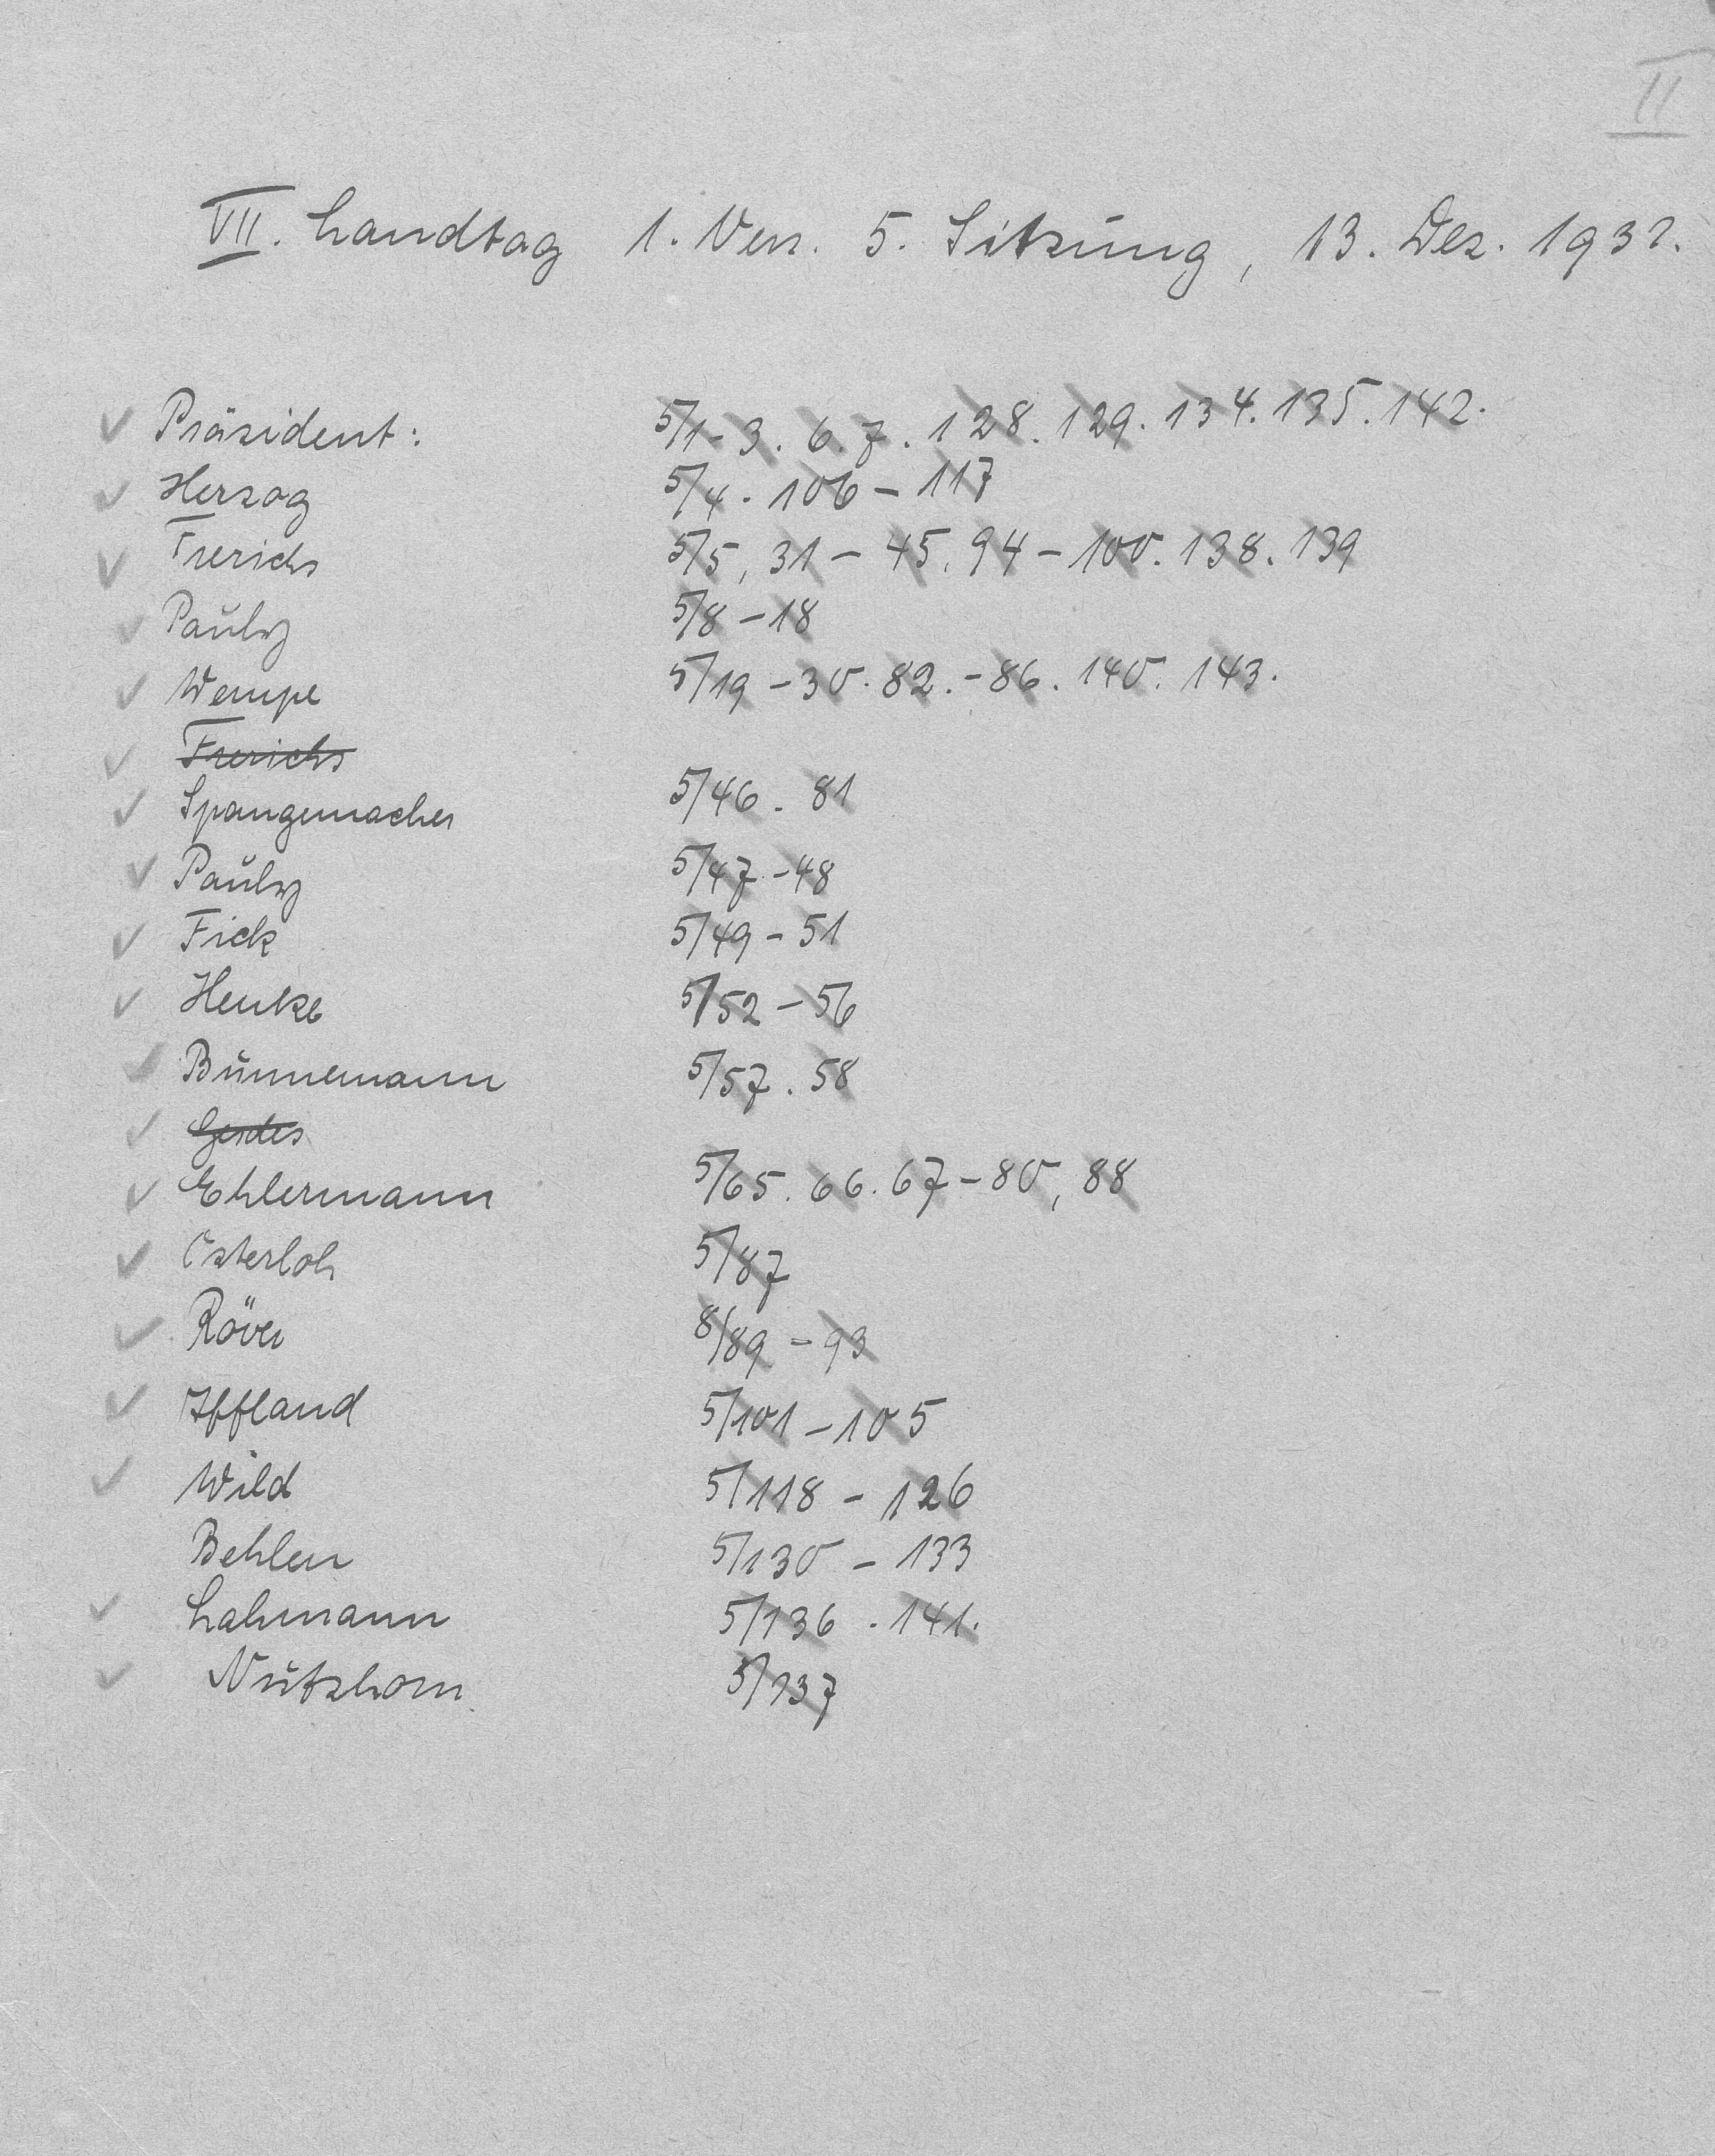 II
VII. Landtag 1. Vers. 5. Sitzung, 13. Dez. 1932.
Präsident: 5/1-3. 6. 7. 128. 129. 134. 135. 142.
Herzog 5/4. 106-117
Frerichs 5/5, 31-45, 94-100. 138. 139
Pauly 5/8-18
Wempe 5/19-30. 82.-86. 140. 143.
Frerichs
Spangemacher 5/46. 81
Pauly 5/47-48
Fick 5/49-51
Henke 5/52-56
Bunnemann 5/57. 58
Gerdes
Ehlermann 5/65. 66. 67-80, 88
Osterloh 5/87
Röver 8/89-93
Iffland 5/101-105
Wild 5/118-126
Behlen 5/130-133
Lahmann 5/136. 141.
Nutzhorn 5/137